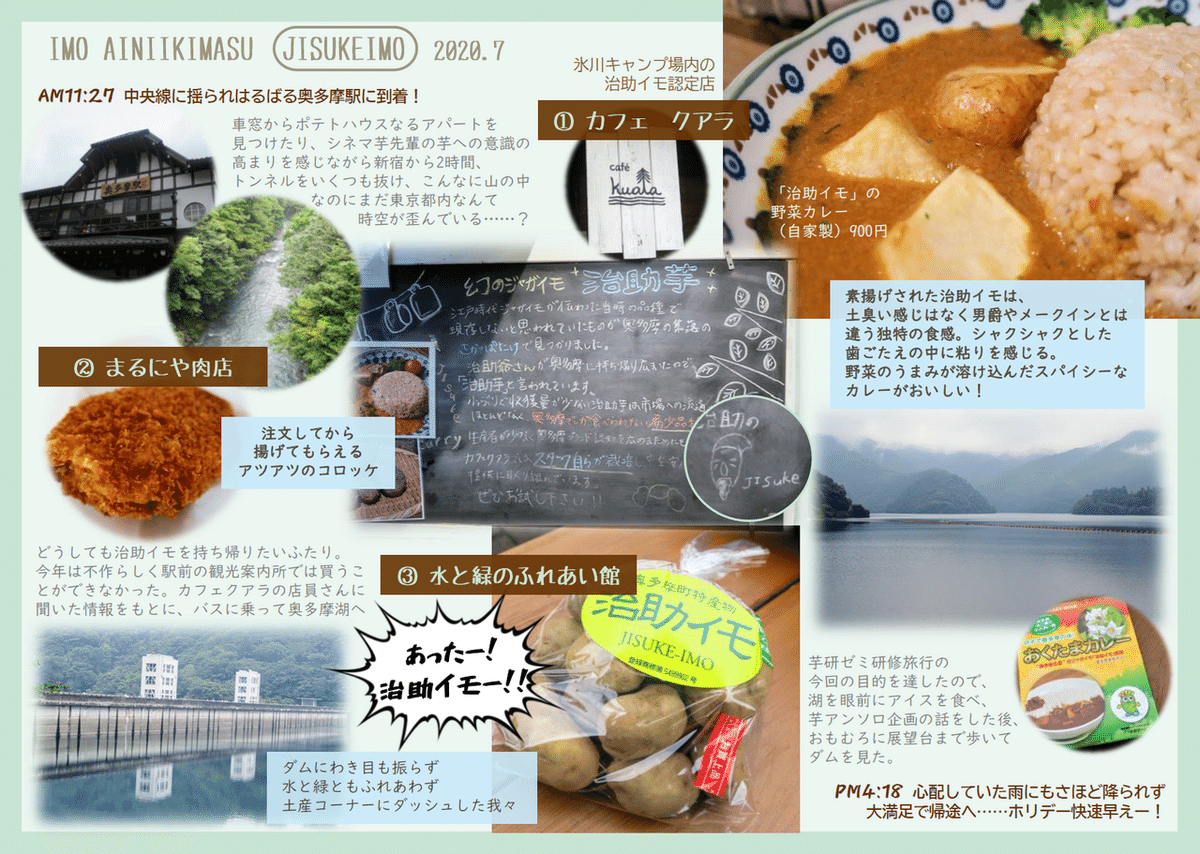 IMO AINIIKIMASU JISUKEIMO 2020.7
AM11:27 中央線に揺られはるばる奥多摩駅に到着！
車窓からポテトハウスなるアパートを
見つけたり、シネマ芋先輩の芋への意識の
高まりを感じながら新宿から2時間、
トンネルをいくつも抜け、こんなに山の中
なのにまだ東京都内なんて
時空が歪んでいる……？
奥多摩駅
氷川キャンプ場内の
治助イモ認定店
① カフェ クアラ
café
Kuala
「治助イモ」の
野菜カレー
（自家製）900円
素揚げされた治助イモは、
土臭い感じはなく男爵やメークインとは
違う独特の食感。シャクシャクとした
歯ごたえの中に粘りを感じる。
野菜のうまみが溶け込んだスパイシーな
カレーがおいしい！
幻のジャガイモ 治助芋
江戸時代ジャガイモが伝わった当時の品種で
現存しないと思われていたものが奥多摩の集落の
で見つかりました。
治助爺さんが奥多摩に持ち帰り広めたので
治助芋と言われています。
小ぶりで収穫量が少ない治助芋は市場への流通
ほとんどなく 奥多摩でしか食べられない希少品
スタッフ自らが栽培し
ぜひお試し下さい!!
治助の
JISuke
② まるにや肉店
注文してから
揚げてもらえる
アツアツのコロッケ
どうしても治助イモを持ち帰りたいふたり。
今年は不作らしく駅前の観光案内所では買うこ
とができなかった。カフェクアラの店員さんに
聞いた情報をもとに、バスに乗って奥多摩湖へ
③ 水と緑のふれあい館
あったー！
治助イモー!!
奥多摩町特産物
治助イモ
JISUKE-IMO
ダムにわき目も振らず
水と緑ともふれあわず
土産コーナーにダッシュした我々
おくたまカレー
芋研ゼミ研修旅行の
今回の目的を達したので、
湖を眼前にアイスを食べ、
芋アンソロ企画の話をした後、
おもむろに展望台まで歩いて
ダムを見た。
PM4:18 心配していた雨にもさほど降られず
大満足で帰途へ……ホリデー快速早えー！